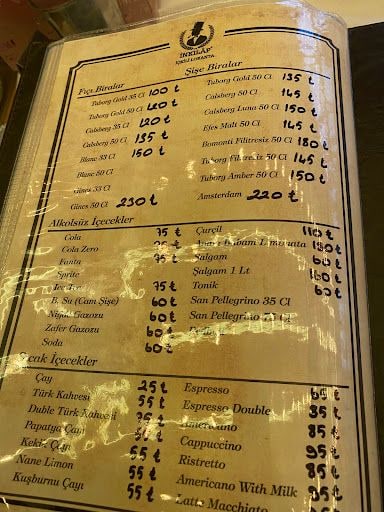 İNKILÂP
İÇKİLİ LOKANTA
Fıçı Biralar
Tuborg Gold 35 Cl 100 ₺
Tuborg Gold 50 Cl 120 ₺
Calsberg 35 Cl 120 ₺
Calsberg 50 Cl 135 ₺
Blanc 33 Cl 150 ₺
Blanc 50 Cl
Gines 33 Cl
Gines 50 Cl 230 ₺
Şişe Biralar
Tuborg Gold 50 Cl 135 ₺
Calsberg 50 Cl 145 ₺
Calsberg Luna 50 Cl 150 ₺
Efes Malt 50 Cl 145 ₺
Bomonti Filitresiz 50 Cl 180 ₺
Tuborg Filitresiz 50 Cl 145 ₺
Tuborg Amber 50 Cl 150 ₺
Amsterdam 220 ₺
Alkolsüz İçecekler
Cola 75 ₺
Cola Zero
Fanta 75 ₺
Sprite
Ice Tea 75 ₺
B. Su (Cam Şişe) 60 ₺
Niğde Gazozu 60 ₺
Zafer Gazozu 60 ₺
Soda 60 ₺
Çurçil 110 ₺
Limonata 180 ₺
Şalgam 60 ₺
Şalgam 1 Lt 160 ₺
Tonik 60 ₺
San Pellegrino 35 Cl
San Pellegrino 75 Cl
Sıcak İçecekler
Çay 25 ₺
Türk Kahvesi 55 ₺
Duble Türk Kahvesi
Papatya Çayı
Kekik Çayı 55 ₺
Nane Limon 55 ₺
Kuşburnu Çayı 55 ₺
Espresso 65 ₺
Espresso Double 85 ₺
Americano 85 ₺
Cappuccino 95 ₺
Ristretto 85 ₺
Americano With Milk 95 ₺
Latte Macchiato